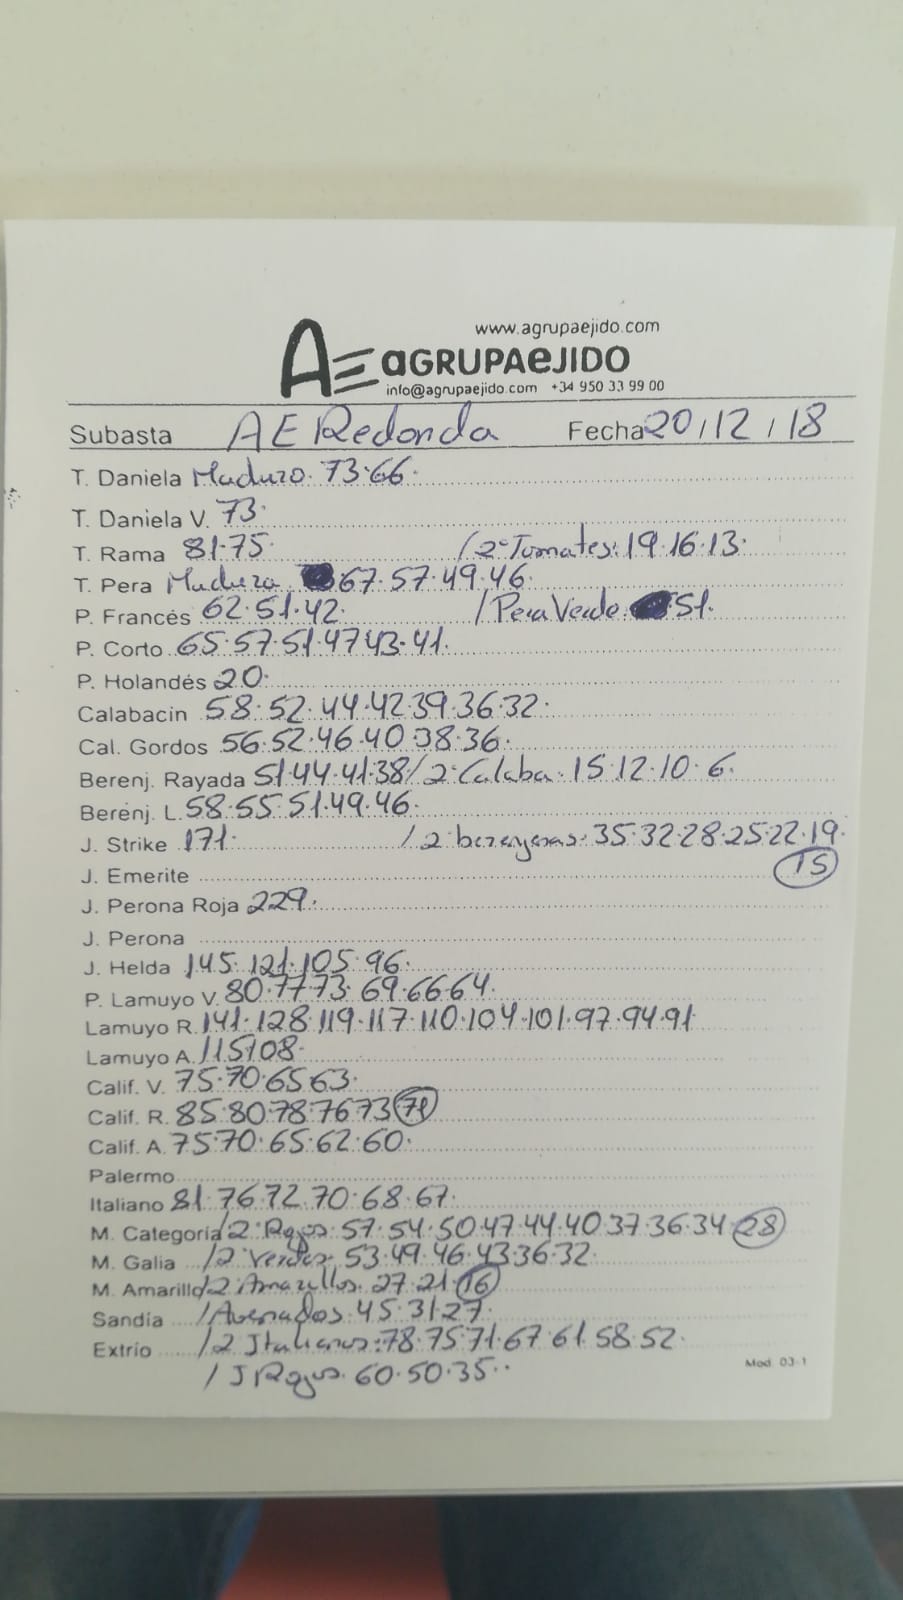 www.agrupaejido.com
AE AGRUPAEJIDO
info@agrupaejido.com +34 950 33 99 00
Subasta AE Redonda Fecha 20/12/18
T. Daniela Maduro. 73.66.
T. Daniela V. 73.
T. Rama 81.75. /2ºTomates: 19.16.13.
T. Pera Maduro. 67.57.49.46.
P. Francés 62.51.42. /Pera Verde. 51.
P. Corto 65.57.51.47.43.41.
P. Holandés 20.
Calabacin 58.52.44.42.39.36.32.
Cal. Gordos 56.52.46.40.38.36.
Berenj. Rayada 51.44.41.38/2ºCalaba. 15.12.10.6.
Berenj. L. 58.55.51.49.46.
J. Strike 171. /2 berenjenas: 35.32.28.25.22.19.
15
J. Emerite
J. Perona Roja 229.
J. Perona
J. Helda 145.121.105.96.
P. Lamuyo V. 80.77.73.69.66.64.
Lamuyo R. 141.128.119.117.110.104.101.97.94.91
Lamuyo A. 115.108.
Calif. V. 75.70.65.63.
Calif. R. 85.80.78.76.73 71
Calif. A. 75.70.65.62.60.
Palermo
Italiano 81.76.72.70.68.67.
M. Categoría /2ºRojos. 57.54.50.47.44.40.37.36.34 28
M. Galia /2ºVerdes. 53.49.46.43.36.32.
M. Amarillo /2 Amarillos. 27.21. 16
Sandía /Asenados. 45.31.27.
Extrio /2 Italianos: 78.75.71.67.61.58.52.
/J Rojos. 60.50.35..
Mod. 03-1